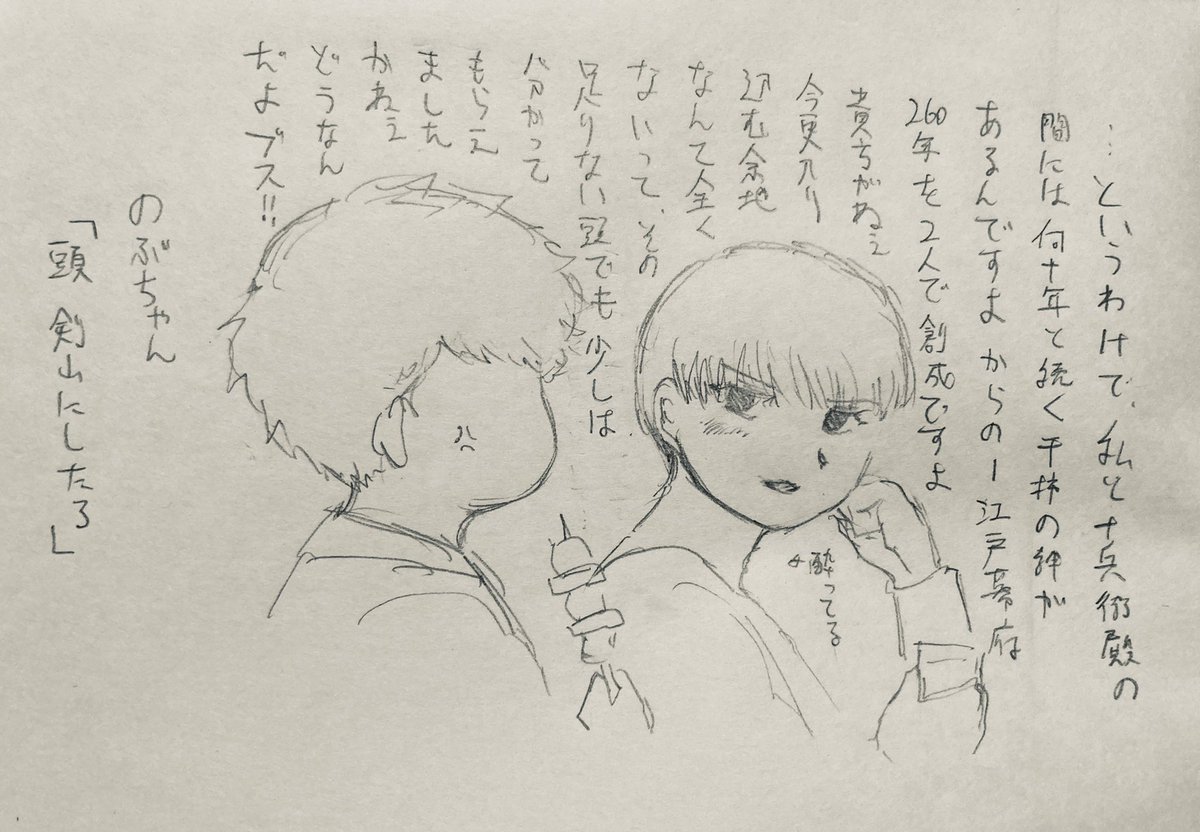 …というわけで、私と十兵衛殿の
間には何十年と続く干林の絆が
あるんですよ からのー江戸幕府
260年を2人で創成ですよ
貴方がねぇ
今更入り
込む余地
なんて全く
ないって、その
足りない頭でも少しは
分かって
もらえ
ました
かねぇ
どうなん
だよブス!!
酔ってる
のぶちゃん
「頭 剣山にしたろ」